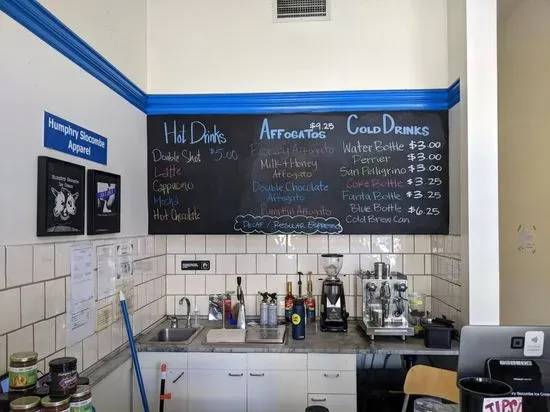 Humphry Slocombe
Apparel
Hot Drinks
Double Shot $5.00
Latte
Cappuccino
Mocha
Hot Chocolate
AFFOGATOS
$9.25
Espresso Affogato
Milk + Honey
Affogato
Double Chocolate
Affogato
Pumpkin Affogato
DECAF / Regular Espresso
COLD DRINKS
Water Bottle $3.00
Perrier $3.00
San Pelligrino $3.00
Coke Bottle $3.25
Fanta Bottle $3.25
Blue Bottle $6.25
Cold Brew Can
TIPS